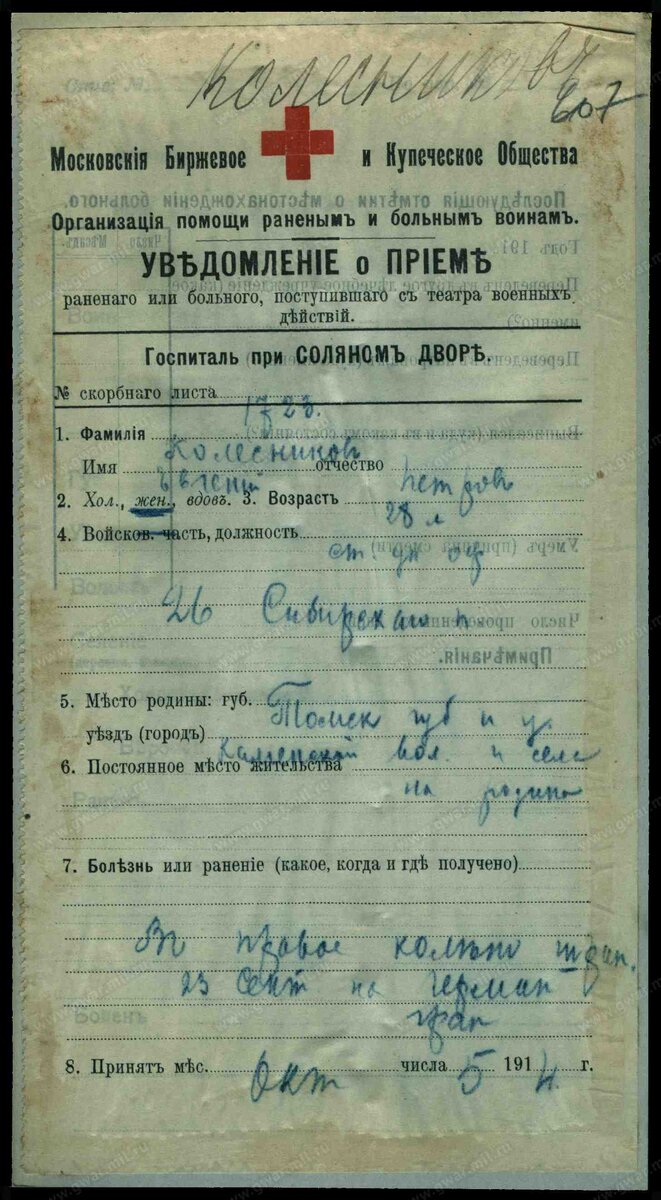 Колесниковъ
607
Московскія Биржевое и Купеческое Общества
Организація помощи раненымъ и больнымъ воинамъ.
УВѢДОМЛЕНІЕ о ПРІЕМѢ
раненаго или больного, поступившаго съ театра военныхъ
дѣйствій.
Госпиталь при СОЛЯНОМЪ ДВОРѢ.
№ скорбнаго листа 1723.
1. Фамилія Колесников
Имя Евгений отчество Петров
2. Хол., жен., вдовъ. 3. Возраст 28 л
4. Войсков. часть, должность ст ун оф
26 Сибирский п
5. Мѣсто родины: губ. Томск губ и у.
уѣздъ (городъ) Каменский вол. и село
6. Постоянное мѣсто жительства на родине
7. Болѣзнь или раненіе (какое, когда и гдѣ получено)
В правое колѣно шрап.
23 Сент на герман
гран
8. Принятъ мѣс. Окт числа 5 1914 г.